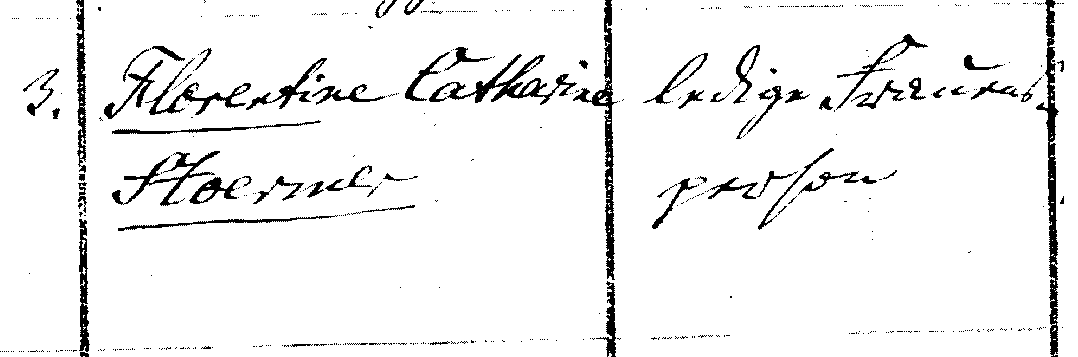 3. Florentine Catharine ledige Frauens-
Stoermer person